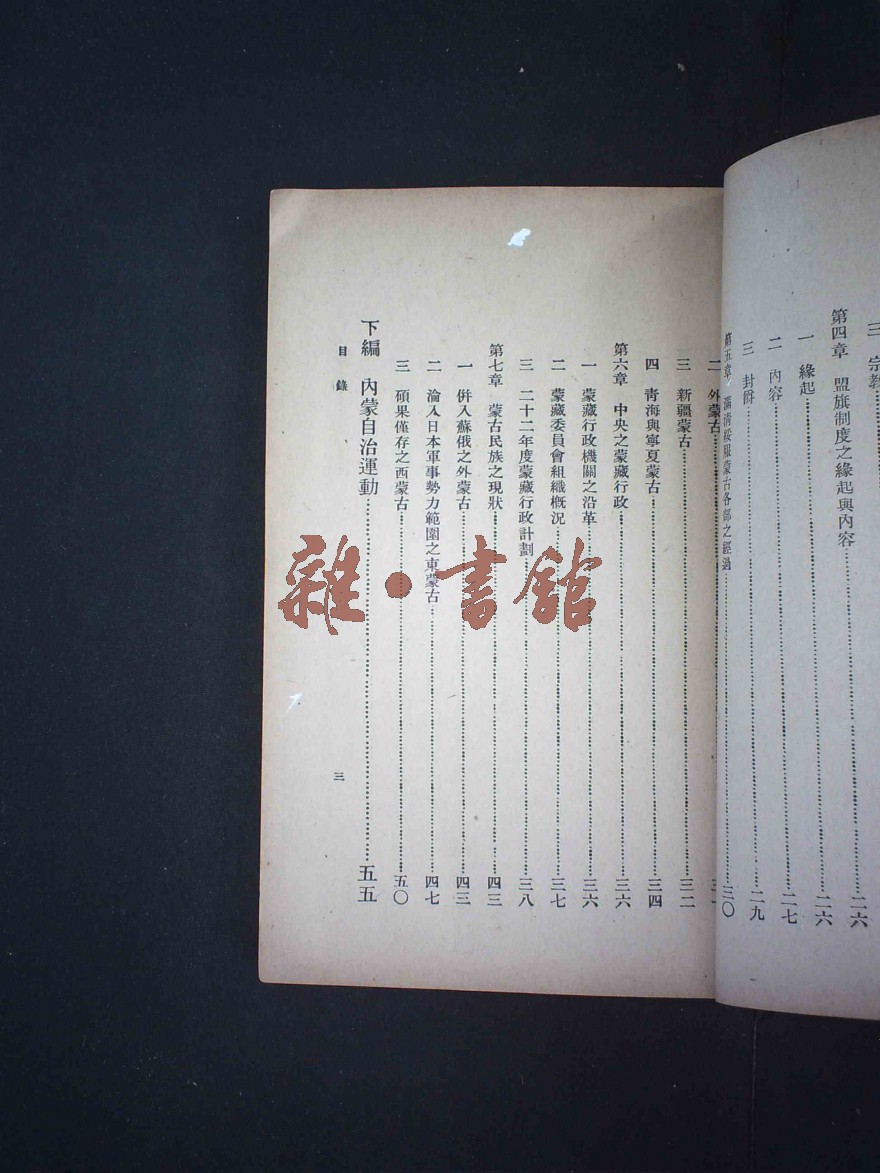 三 宗教
第四章 盟旗制度之緣起與內容……二六
一 緣起……二六
二 內容……二七
三 封爵……二九
第五章 滿清綏服蒙古各部之經過……三〇
二 外蒙古……三二
三 新疆蒙古……三二
四 青海與寧夏蒙古……三四
第六章 中央之蒙藏行政……三六
一 蒙藏行政機關之沿革……三六
二 蒙藏委員會組織概況……三七
三 二十二年度蒙藏行政計劃……三八
第七章 蒙古民族之現狀……四三
一 併入蘇俄之外蒙古……四三
二 淪入日本軍事勢力範圍之東蒙古……四七
三 碩果僅存之西蒙古……五〇
下編 內蒙自治運動……五五
目錄
三
雜·書館